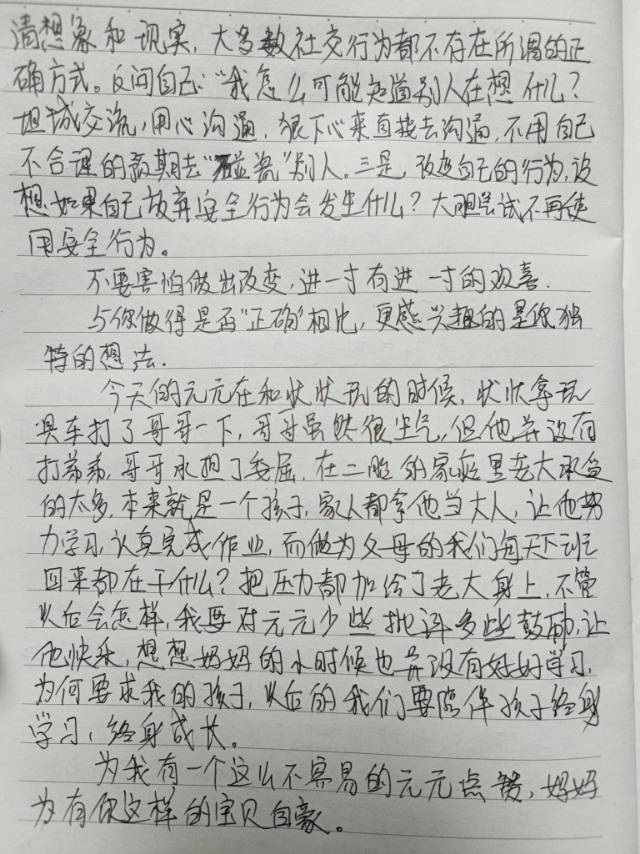 清想象和现实,大多数社交行为都不存在所谓的正
确方式。反问自己:“我怎么可能知道别人在想什么?
坦诚交流,用心沟通,狠下心来直接去沟通,不用自己
不合理的预期去“碰瓷”别人。三是,改变自己的行为,设
想如果自己放弃安全行为会发生什么?大胆尝试不再使
用安全行为。
不要害怕做出改变,进一寸有进一寸的欢喜.
与你做得是否“正确”相比,更感兴趣的是你独
特的想法.
今天的元元在和状状玩的时候,状状拿玩
具车打了哥哥一下,哥哥虽然很生气,但他并没有
打弟弟,哥哥承担了委屈.在二胎的家庭里老大承受
的太多,本来就是一个孩子,家人都拿他当大人,让他努
力学习,认真完成作业,而做为父母的我们每天下班
回来都在干什么?把压力都加给了老大身上,不管
以后会怎样,我要对元元少些批评多些鼓励,让
他快乐,想想妈妈的小时候也并没有好好学习,
为何要求我的孩子,以后的我们要陪伴孩子终身
学习,终身成长。
为我有一个这么不容易的元元点赞,妈妈
为有你这样的宝贝自豪。